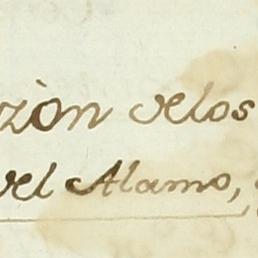 zòn delos
del Alamo,